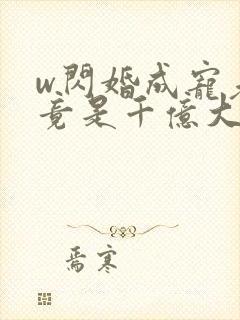 w.閃婚成寵
竟是千億大
焉寒